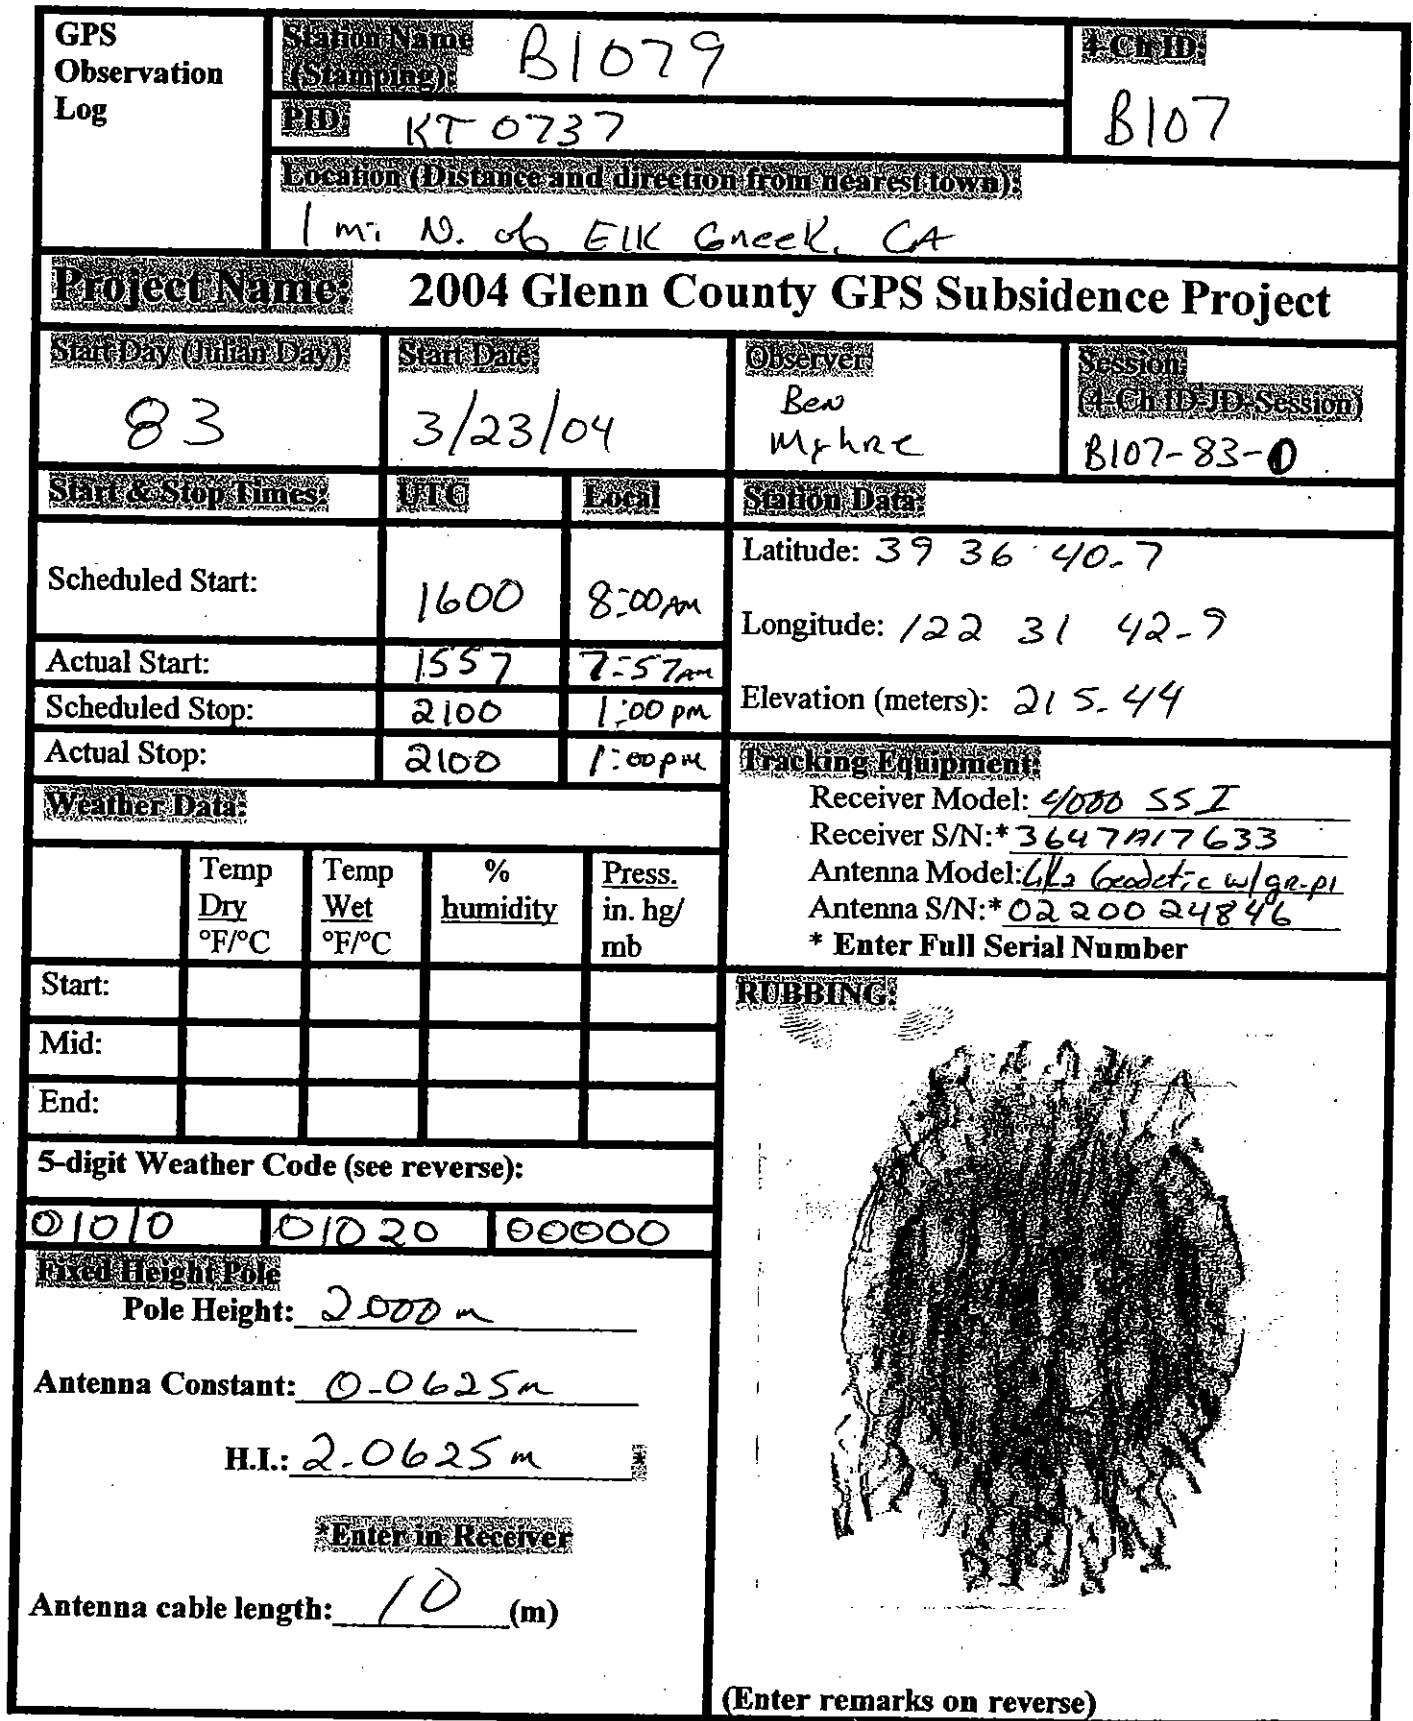 GPS
Observation
Log
Station Name
(Stamping):
B1079
4-Ch ID:
B107
PID:
KT 0737
Location (Distance and direction from nearest town):
1 mi N. of Elk Creek, CA
Project Name: 2004 Glenn County GPS Subsidence Project
Start Day (Julian Day)
83
Start Date:
3/23/04
Observer:
Ben
Myhre
Session:
(4-Ch ID-JD-Session)
B107-83-0
Start & Stop Times: UTC Local
Scheduled Start: 1600 8:00AM
Actual Start: 1557 7:57am
Scheduled Stop: 2100 1:00 pm
Actual Stop: 2100 1:00pm
Station Data:
Latitude: 39 36 40.7
Longitude: 122 31 42.9
Elevation (meters): 215.44
Tracking Equipment:
Receiver Model: 4000 SSI
Receiver S/N:* 3647A17633
Antenna Model: Geodetic w/gr.pl
Antenna S/N:* 0220024846
* Enter Full Serial Number
Weather Data:
Temp
Dry
°F/°C
Temp
Wet
°F/°C
%
humidity
Press.
in. hg/
mb
Start:
Mid:
End:
5-digit Weather Code (see reverse):
01010 01020 00000
Fixed Height Pole
Pole Height: 2.000 m
Antenna Constant: 0.0625m
H.I.: 2.0625 m *
*Enter in Receiver
Antenna cable length: 10 (m)
RUBBING:
(Enter remarks on reverse)